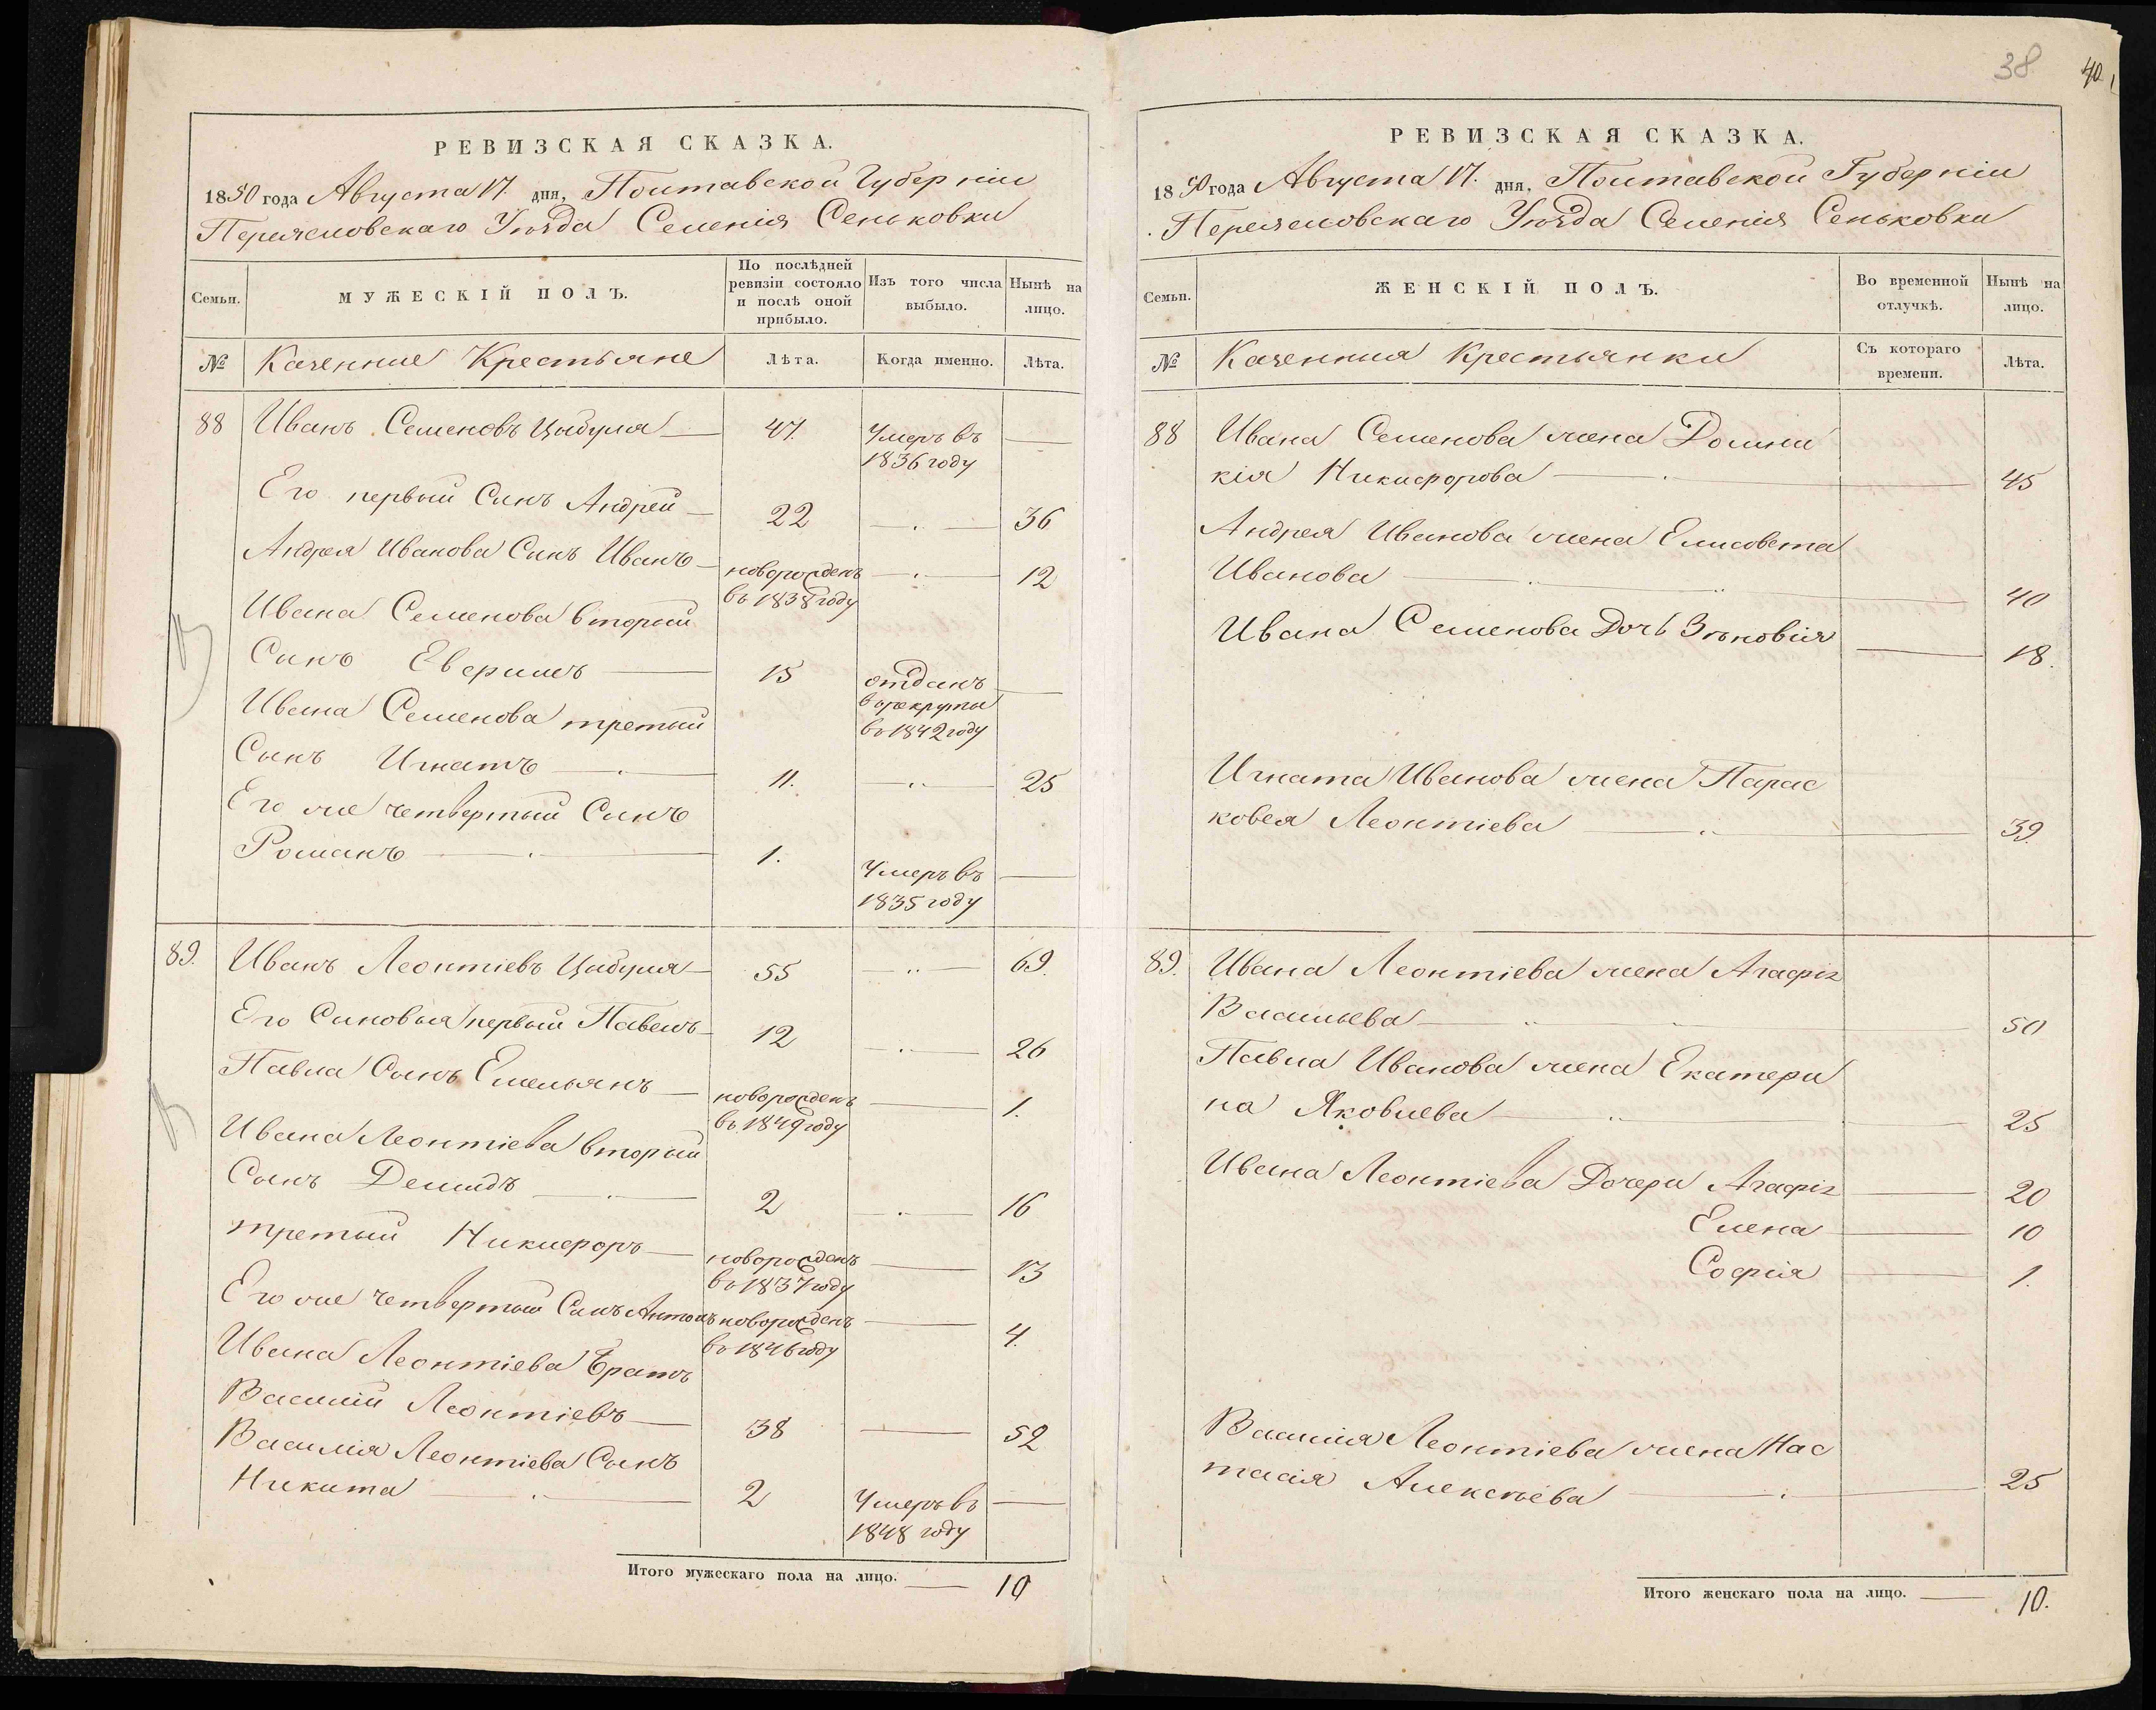 38
40
РЕВИЗСКАЯ СКАЗКА.
1850 года Августа 17. дня, Полтавской Губерніи
Переяславскаго Уѣзда Селенія Сеньковки
Семьи.
МУЖЕСКІЙ ПОЛЪ.
По послѣдней ревизіи состояло и послѣ оной прибыло.
Изъ того числа выбыло.
Нынѣ на лицо.
№
Казенние Крестьяне
Лѣта.
Когда именно.
Лѣта.
88 Иванъ Семеновъ Цыбуля — 47. Умеръ въ —
1836 году
Его первый Сынъ Андрей — 22 — 36
Андрея Иванова Сынъ Иванъ — новорожденъ — 12
въ 1838 году
Ивана Семенова вторый
Сынъ Еверимъ — 15 отданъ —
в рекруты
Ивана Семенова третый въ 1842 году
Сынъ Игнатъ — 11. — 25
Его же четвертый Сынъ
Романъ — 1. Умеръ въ —
1835 году
89. Иванъ Леонтіевъ Цыбуля — 55 — 69.
Его Сыновья первый Павелъ — 12 — 26
Павла Сынъ Емельянъ — новорожденъ — 1.
въ 1849 году
Ивана Леонтіева вторый
Сынъ Демидъ — 2 — 16
третый Никифоръ — новорожденъ — 13
въ 1837 году
Его же четвертый Сынъ Антонъ новорожденъ — 4.
въ 1846 году
Ивана Леонтіева Братъ
Василій Леонтіевъ — 38 — 52
Василія Леонтіева Сынъ
Никита — 2 Умеръ въ —
1848 году
Итого мужескаго пола на лицо. — 10
РЕВИЗСКАЯ СКАЗКА.
1850 года Августа 17. дня, Полтавской Губерніи
Переяславскаго Уѣзда Селенія Сеньковки
Семьи.
ЖЕНСКІЙ ПОЛЪ.
Во временной отлучкѣ.
Нынѣ на лицо.
№
Казенния Крестьянки
Съ котораго времени.
Лѣта.
88 Ивана Семенова жена Домни
кія Никифорова — 45
Андрея Иванова жена Елисовета
Иванова — 40
Ивана Семенова Дочь Зѣновія — 18.
Игната Иванова жена Парас
ковея Леонтіева — 39.
89. Ивана Леонтіева жена Агафія
Васильева — 50
Павла Иванова жена Екатери
на Яковлева — 25
Ивана Леонтіева Дочери Агафія — 20
Елена — 10
Софія — 1.
Василія Леонтіева жена Нас
тасія Алексѣева — 25
Итого женскаго пола на лицо. — 10.